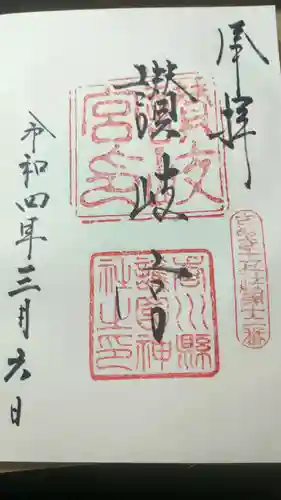 奉拝
讃岐宮
令和四年三月六日
香川縣
護國神
社之印